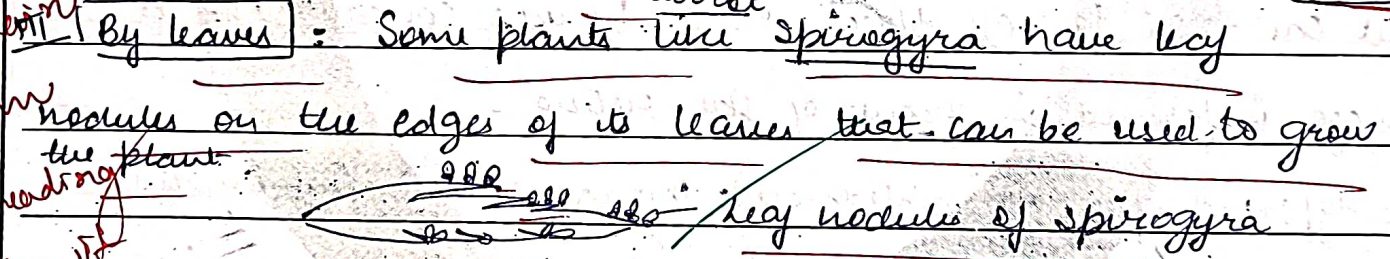 By leaves : Some plants like spirogyra have leaf
nodules on the edges of its leaves that can be used to grow
the plant
Leaf nodule of spirogyra